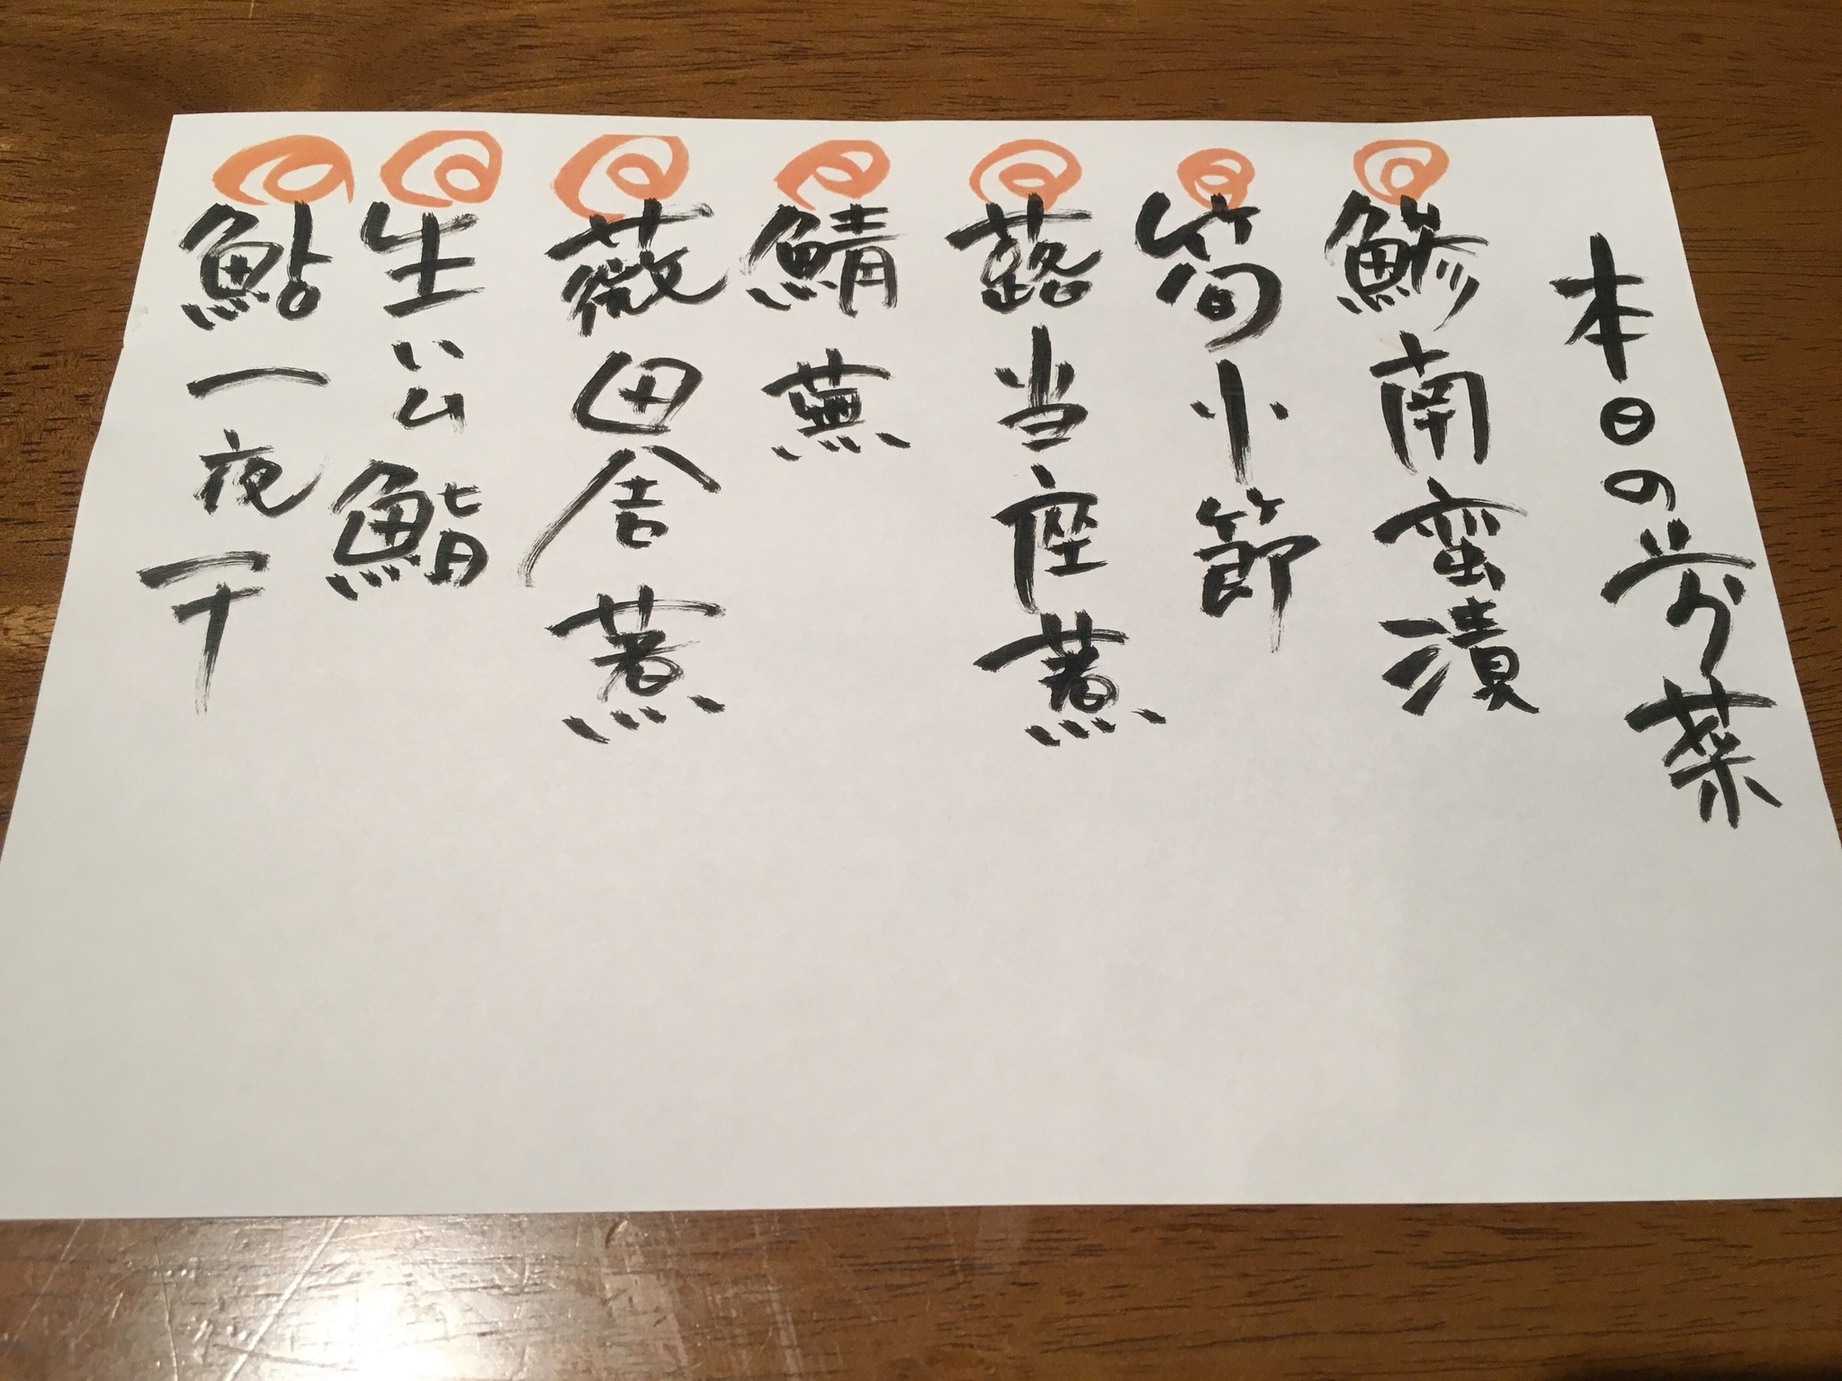 本日の前菜
鯵南蛮漬
筍小節
蕗当座煮
鯖蕪
薇田舎煮
生ハム鮨
鮎一夜干